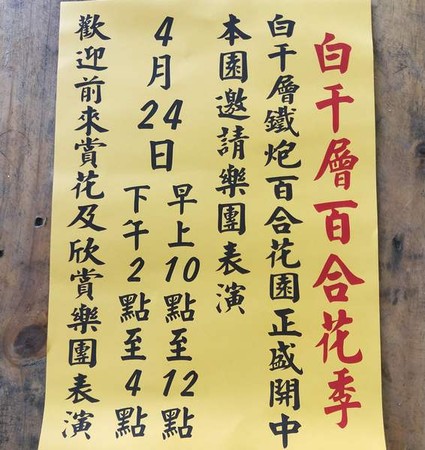 白千層百合花季
白千層鐵炮百合花園正盛開中
本園邀請樂團表演
4月24日
早上10點至12點
下午2點至4點
歡迎前來賞花及欣賞樂團表演